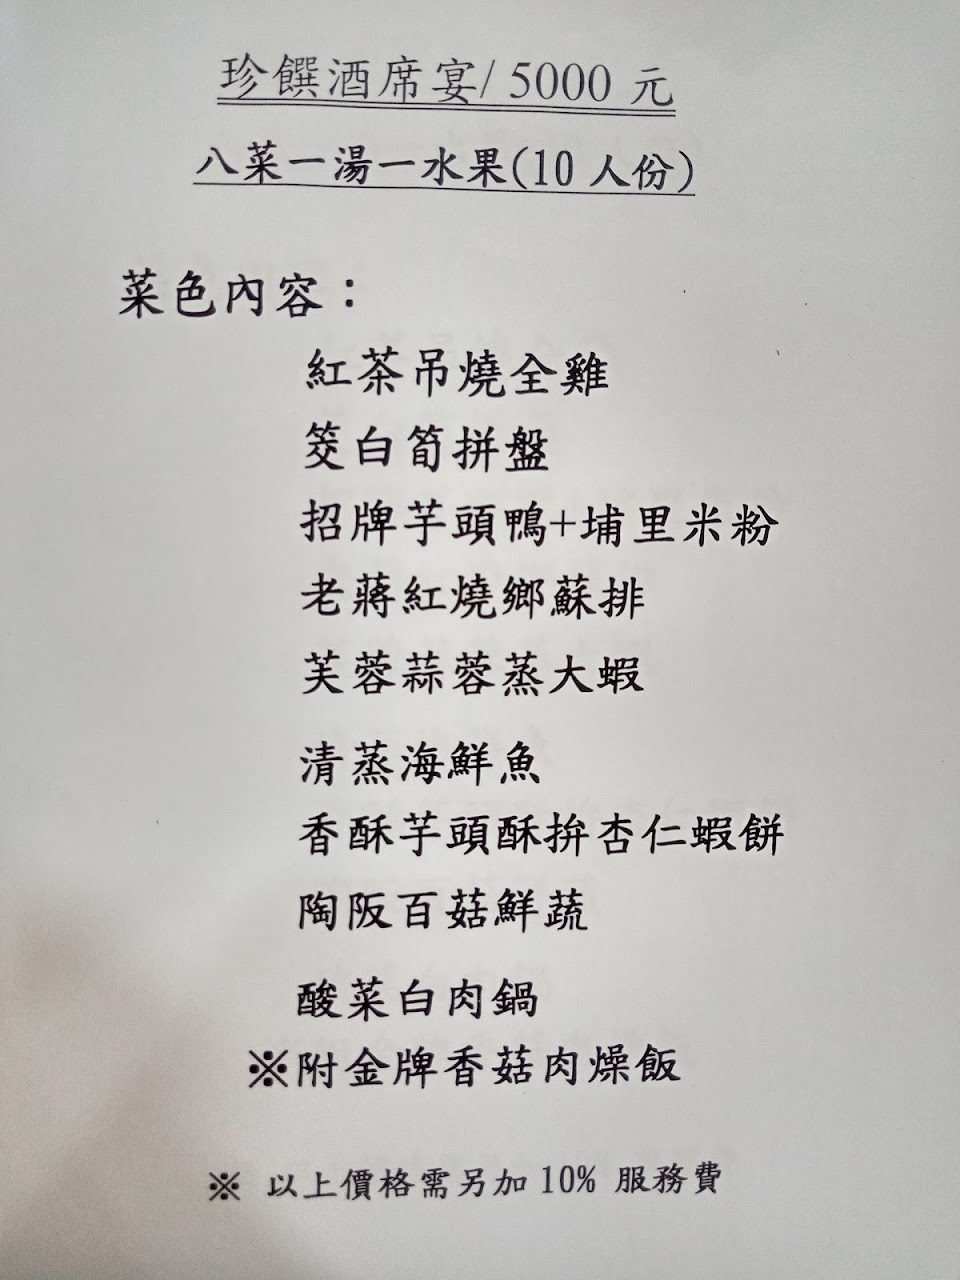 珍饌酒席宴/ 5000 元
八菜一湯一水果(10 人份)
菜色內容：
紅茶吊燒全雞
筊白筍拼盤
招牌芋頭鴨+埔里米粉
老蔣紅燒鄉蘇排
芙蓉蒜蓉蒸大蝦
清蒸海鮮魚
香酥芋頭酥拚杏仁蝦餅
陶阪百菇鮮蔬
酸菜白肉鍋
※附金牌香菇肉燥飯
※ 以上價格需另加 10% 服務費